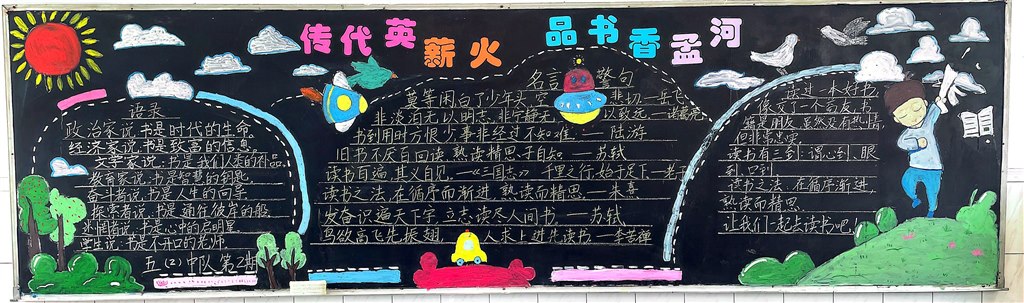 传代英
薪火
品书香孟河
语录
政治家说:书是时代的生命。
经济家说:书是致富的信息。
文学家说:书是我们人类的补品。
教育家说:书是智慧的钥匙。
奋斗者说:书是人生的向导
探索者说:书是通往彼岸的船
迷惘者说:书是心中的启明星
学生说:书是不开口的老师。
五(2)中队第2期
名言警句
莫等闲白了少年头,空悲切—岳飞
非淡泊无以明志,非宁静无以致远—诸葛亮
书到用时方恨少事非经过不知难.—陆游
旧书不厌百回读,熟读精思子自知—苏轼
读书百遍,其义自见,—《三国志》 千里之行,始于足下—老子
读书之法,在循序而渐进,熟读而精思—朱熹
发奋识遍天下字,立志读尽人间书.—苏轼
鸟欲高飞先振翅,人求上进先读书—李苦禅
读过一本好书,
像交了一个益友.书
籍是朋友,虽然没有热情,
但非常忠实.
读书有三到:谓心到、眼
到、口到
读书之法,在循序渐进,
熟读而精思
让我们一起去读书吧!